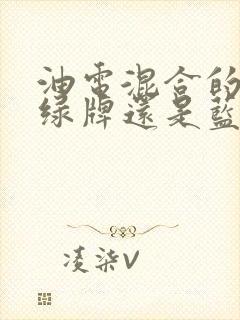 油電混合的
綠牌還是藍
凌柒V